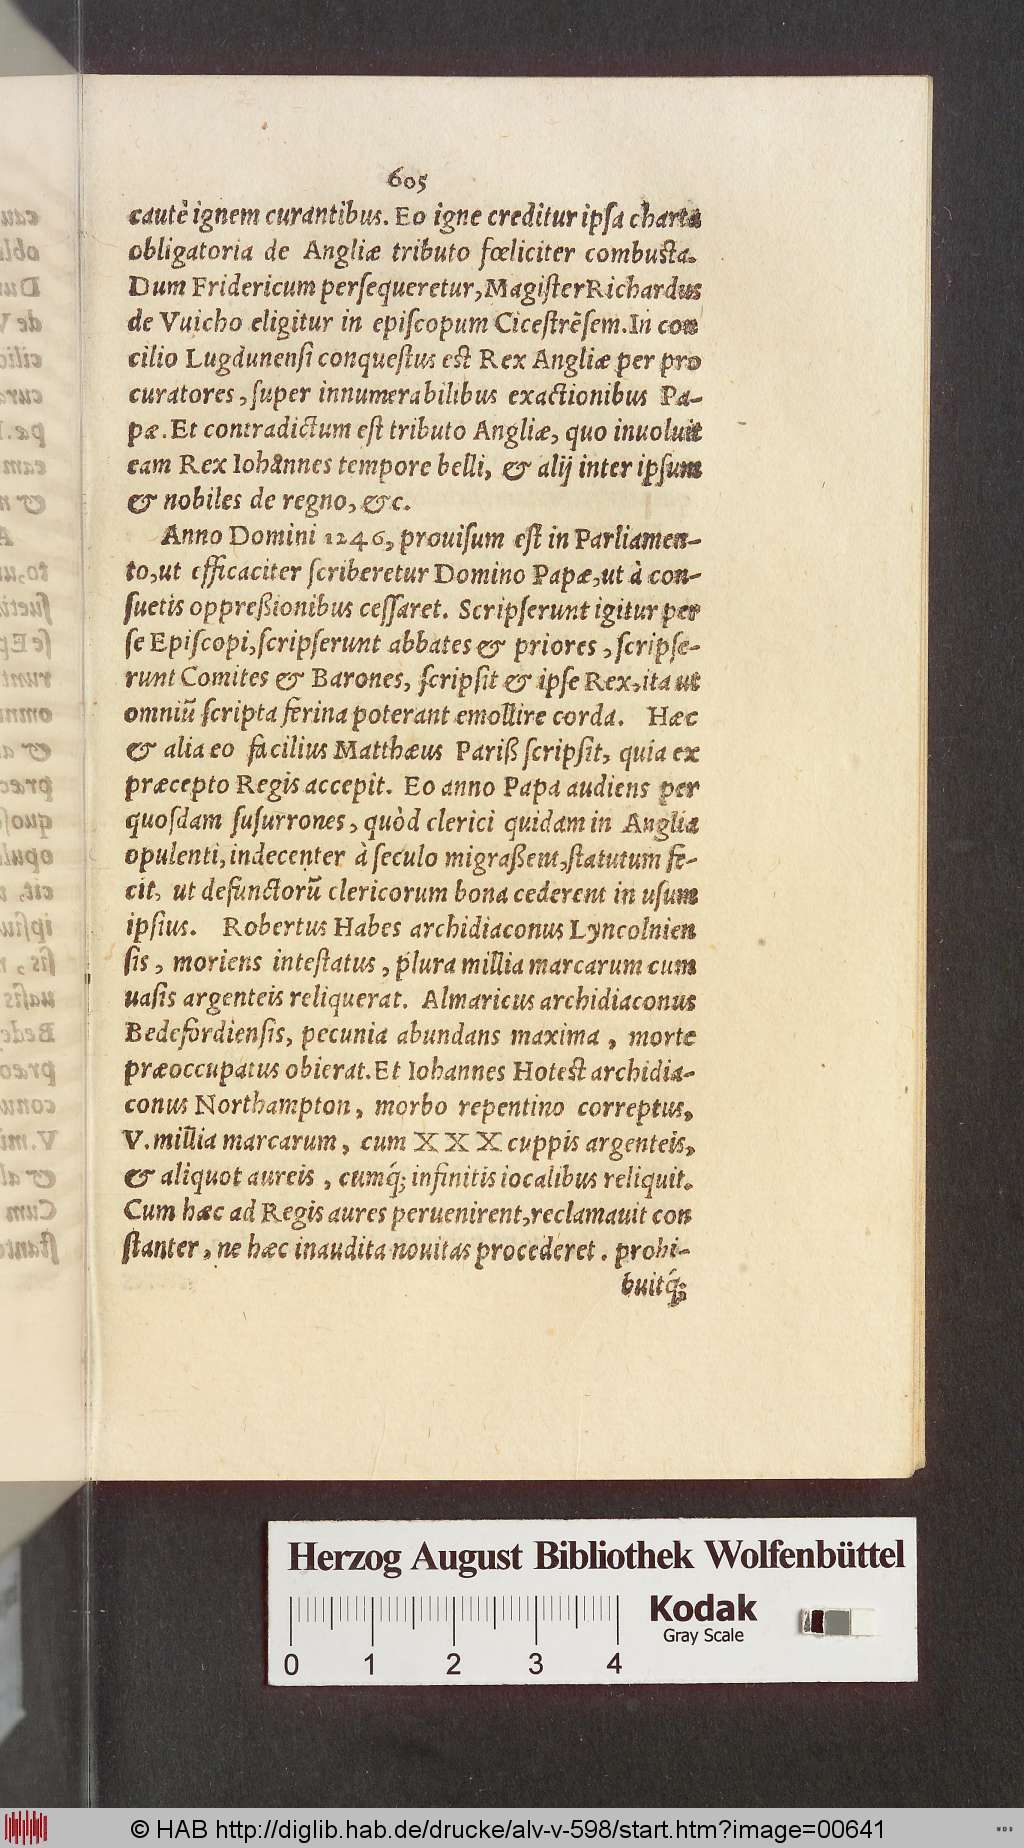 605
cautè ignem curantibus. Eo igne creditur ipſa charta
obligatoria de Angliæ tributo fœliciter combuſta.
Dum Fridericum perſequeretur, Magiſter Richardus
de Vuicho eligitur in epiſcopum Ciceſtrẽſem. In con
cilio Lugdunenſi conqueſtus eſt Rex Angliæ per pro
curatores, ſuper innumerabilibus exactionibus Pa-
pæ. Et contradictum eſt tributo Angliæ, quo inuoluit
eam Rex Iohannes tempore belli, & alij inter ipſum
& nobiles de regno, &c.
Anno Domini 1246, prouiſum eſt in Parliamen-
to, ut efficaciter ſcriberetur Domino Papæ, ut à con-
ſuetis oppreßionibus ceſſaret. Scripſerunt igitur per
ſe Epiſcopi, ſcripſerunt abbates & priores, ſcripſe-
runt Comites & Barones, ſcripſit & ipſe Rex, ita ut
omniũ ſcripta ferina poterant emollire corda. Hæc
& alia eo facilius Matthæus Pariß ſcripſit, quia ex
præcepto Regis accepit. Eo anno Papa audiens per
quoſdam ſuſurrones, quòd clerici quidam in Anglia
opulenti, indecenter à ſeculo migraßent, ſtatutum fe-
cit, ut defunctorũ clericorum bona cederent in uſum
ipſius. Robertus Habes archidiaconus Lyncolnien
ſis, moriens inteſtatus, plura millia marcarum cum
uaſis argenteis reliquerat. Almaricus archidiaconus
Bedefordienſis, pecunia abundans maxima, morte
præoccupatus obierat. Et Iohannes Hoteſt archidia-
conus Northampton, morbo repentino correptus,
V. millia marcarum, cum XXX cuppis argenteis,
& aliquot aureis, cumq́; infinitis iocalibus reliquit.
Cum hæc ad Regis aures peruenirent, reclamauit con
ſtanter, ne hæc inaudita nouitas procederet. prohi-
buitq́;
Herzog August Bibliothek Wolfenbüttel
Kodak
Gray Scale
0 1 2 3 4
© HAB http://diglib.hab.de/drucke/alv-v-598/start.htm?image=00641